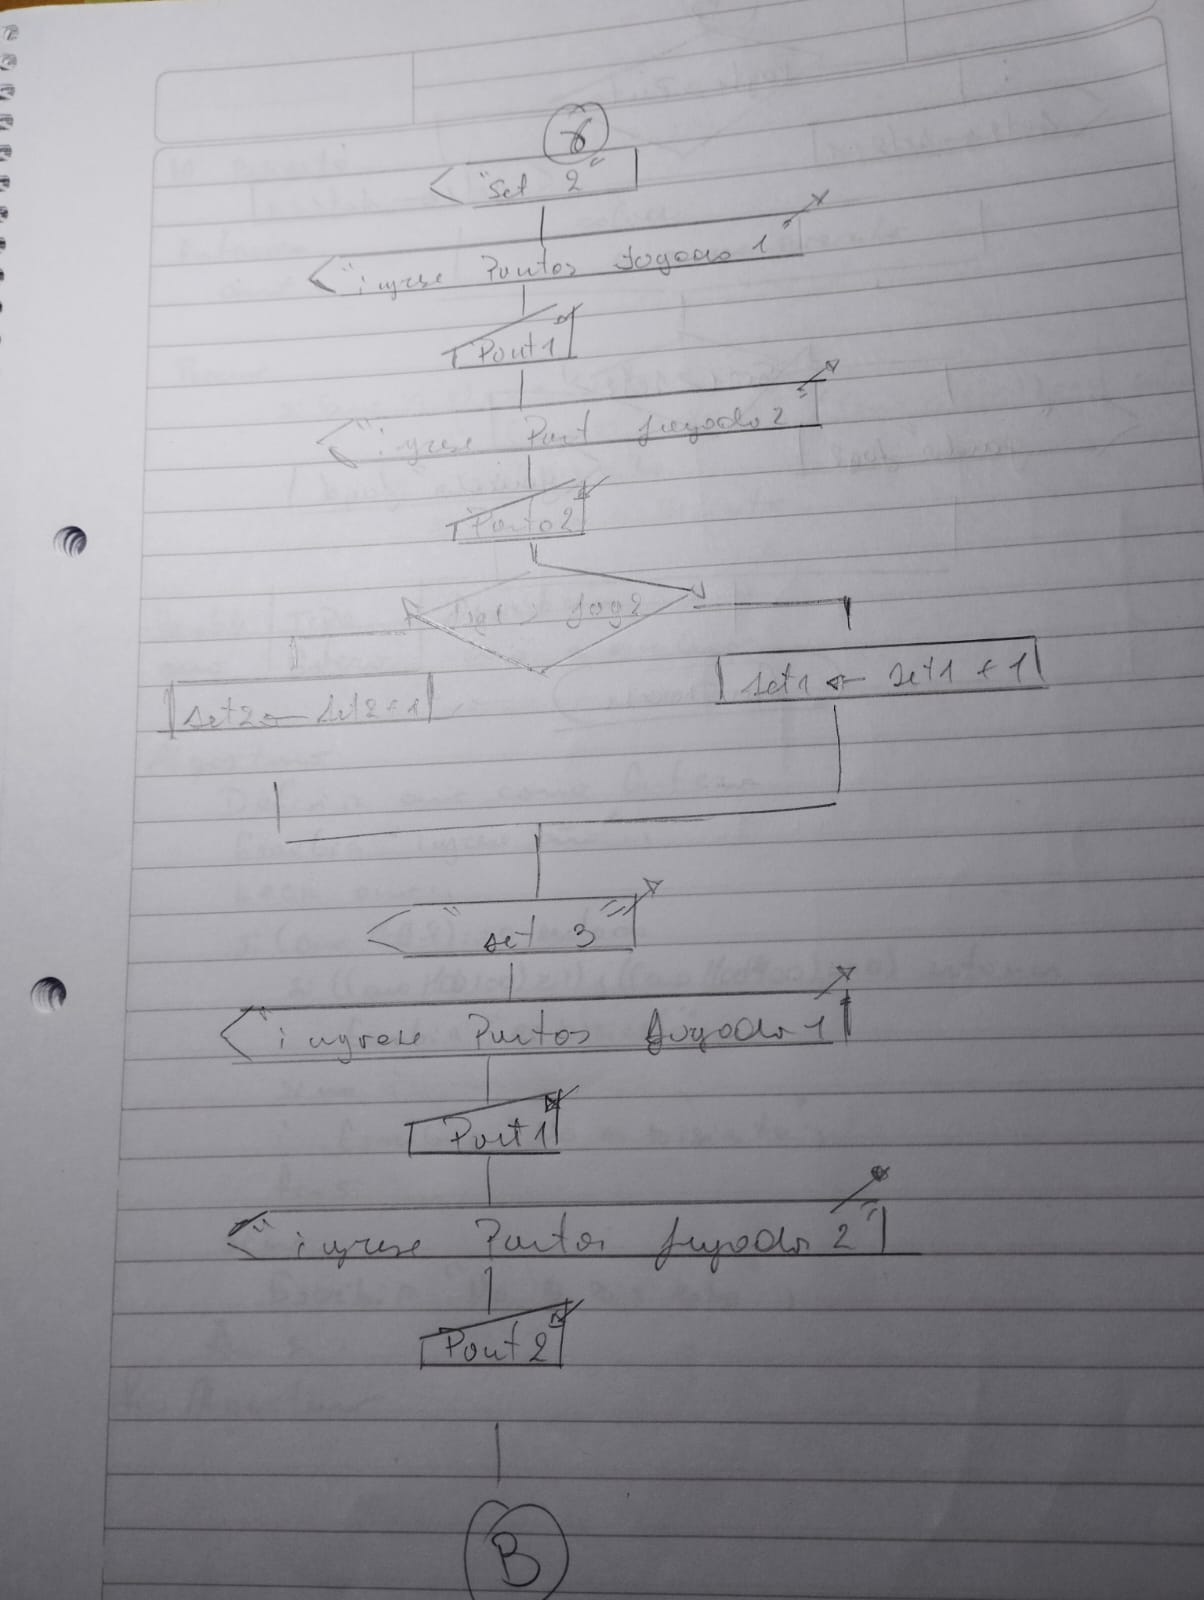 "Set 2"
"ingrese Puntos Jugador 1"
Punt1
"ingrese Punt jugador 2"
Punto2
F Jug1 > Jug2 V
set2 ← set2 + 1
set1 ← set1 + 1
"set 3"
"ingrese Puntos Jugador 1"
Punt1
"ingrese Puntos jugador 2"
Punt2
B